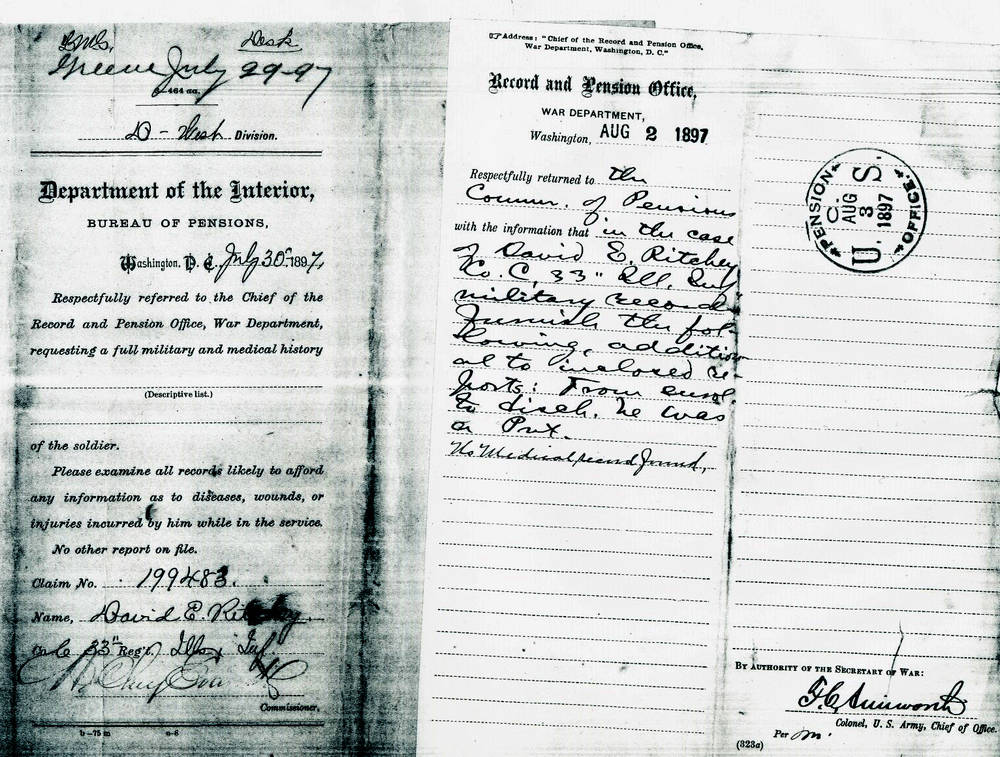 Desk
Greene July 29-97
464 aa.
D - Desk Division.
Department of the Interior,
BUREAU OF PENSIONS,
Washington, D. C., July 30, 1897,
Respectfully referred to the Chief of the
Record and Pension Office, War Department,
requesting a full military and medical history
(Descriptive list.)
of the soldier.
Please examine all records likely to afford
any information as to diseases, wounds, or
injuries incurred by him while in the service.
No other report on file.
Claim No. 199483.
Name, David E. Ritchey
Co. C 33" Reg't. Ills. Inf
Commissioner.
b—75 m 6-6
Address: "Chief of the Record and Pension Office,
War Department, Washington, D. C."
Record and Pension Office,
WAR DEPARTMENT,
Washington, AUG 2 1897
Respectfully returned to the
Commr. of Pensions
with the information that in the case
of David E. Ritchey
Co. C, 33" Ill. Inf
military records
furnish the fol-
lowing, addition
al to inclosed re-
ports: From enrol.
to disch. he was
a Pvt.
No Medical record found,
PENSION OFFICE
C.
AUG
3
1897
U. S.
BY AUTHORITY OF THE SECRETARY OF WAR:
F. C. Ainsworth
Colonel, U. S. Army, Chief of Office.
Per m.
(323a)